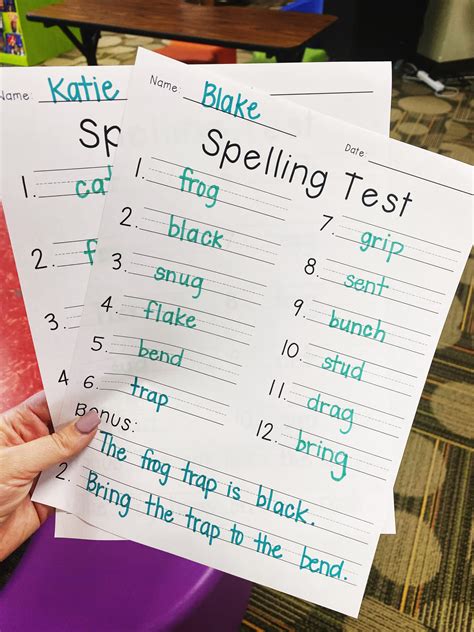 Name: Katie
Sp
1. cat
2. f
3.
4
Name: Blake
Date:
Spelling Test
1. frog
2. black
3. snug
4. flake
5. bend
6. trap
7. grip
8. sent
9. bunch
10. stud
11. drag
12. bring
Bonus:
The frog trap is black.
2. Bring the trap to the bend.